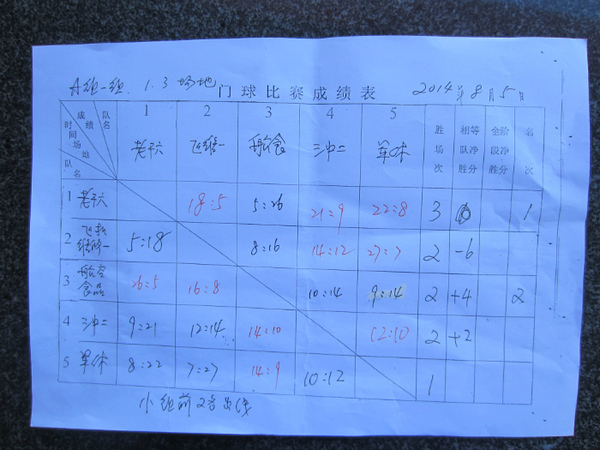 A组一组 1.3场地 门球比赛成绩表 2014年8月5日
队名 成绩 时间 场地 队名 1 2 3 4 5 胜场次 相等队净胜分 全阶段净胜分 名次
老干六 飞维一 航食 三冲二 军休
1 老干六 18:5 5:26 21:9 22:8 3 1
2 飞机维修一 5:18 8:16 14:12 27:7 2 -6
3 航空食品 26:5 16:8 10:14 9:14 2 +4 2
4 三冲二 9:21 12:14 14:10 12:10 2 +2
5 军休 8:22 7:27 14:9 10:12 1
小组前2名出线